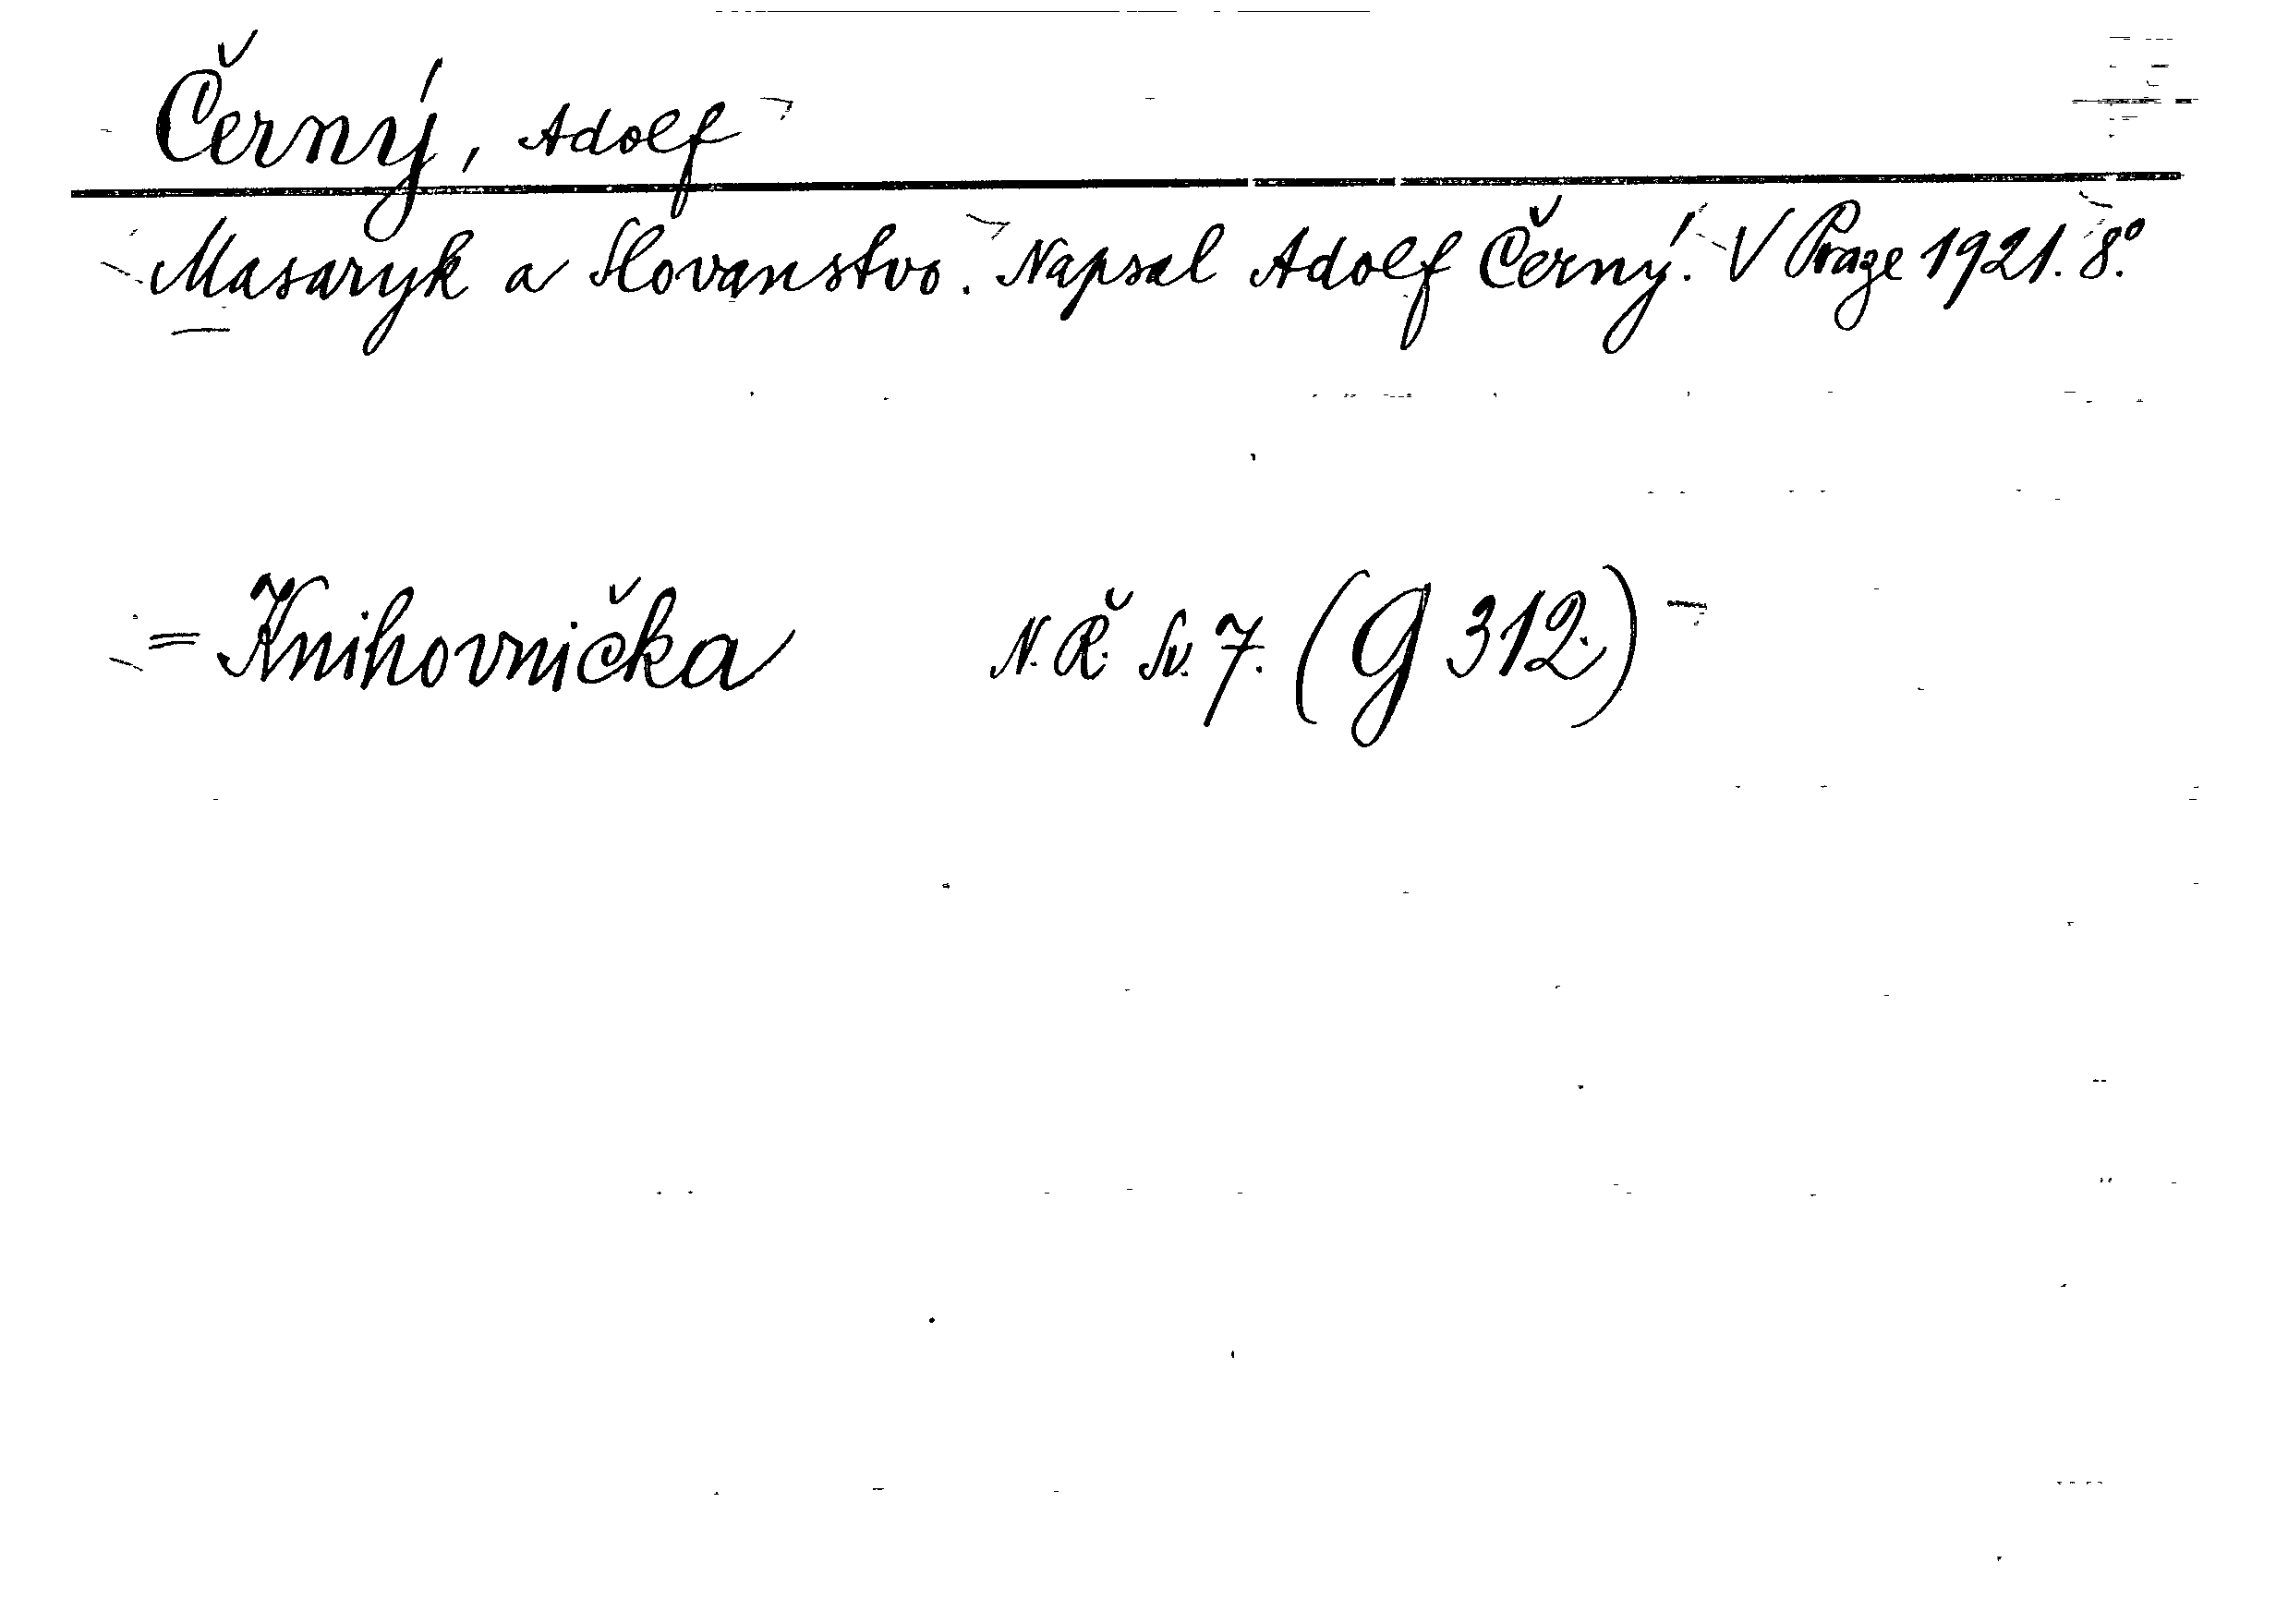 Černý, Adolf
Masaryk a Slovanstvo. Napsal Adolf Černý. V Praze 1921. 8°.
= Knihovnička N. Ř. Sv. 7. (G 312.)